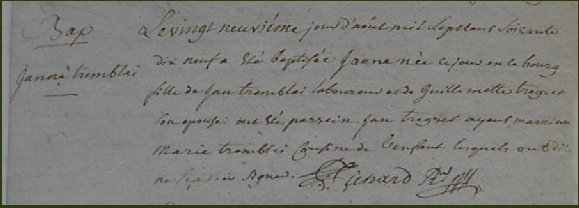 Bap
Janne tremblai
Le vingt neuviéme jour d'aout mil sept cens soixante
dix neuf a été baptisée Janne née ce jour en le bourg
fille de Jan tremblai laboureur et de Guillemette tregret
son epouse: ont été parrein Jan tregret ayeul marrinne
Marie tremblai Cousine de l'enfant lesquels ont dit
ne sçavoir signer.